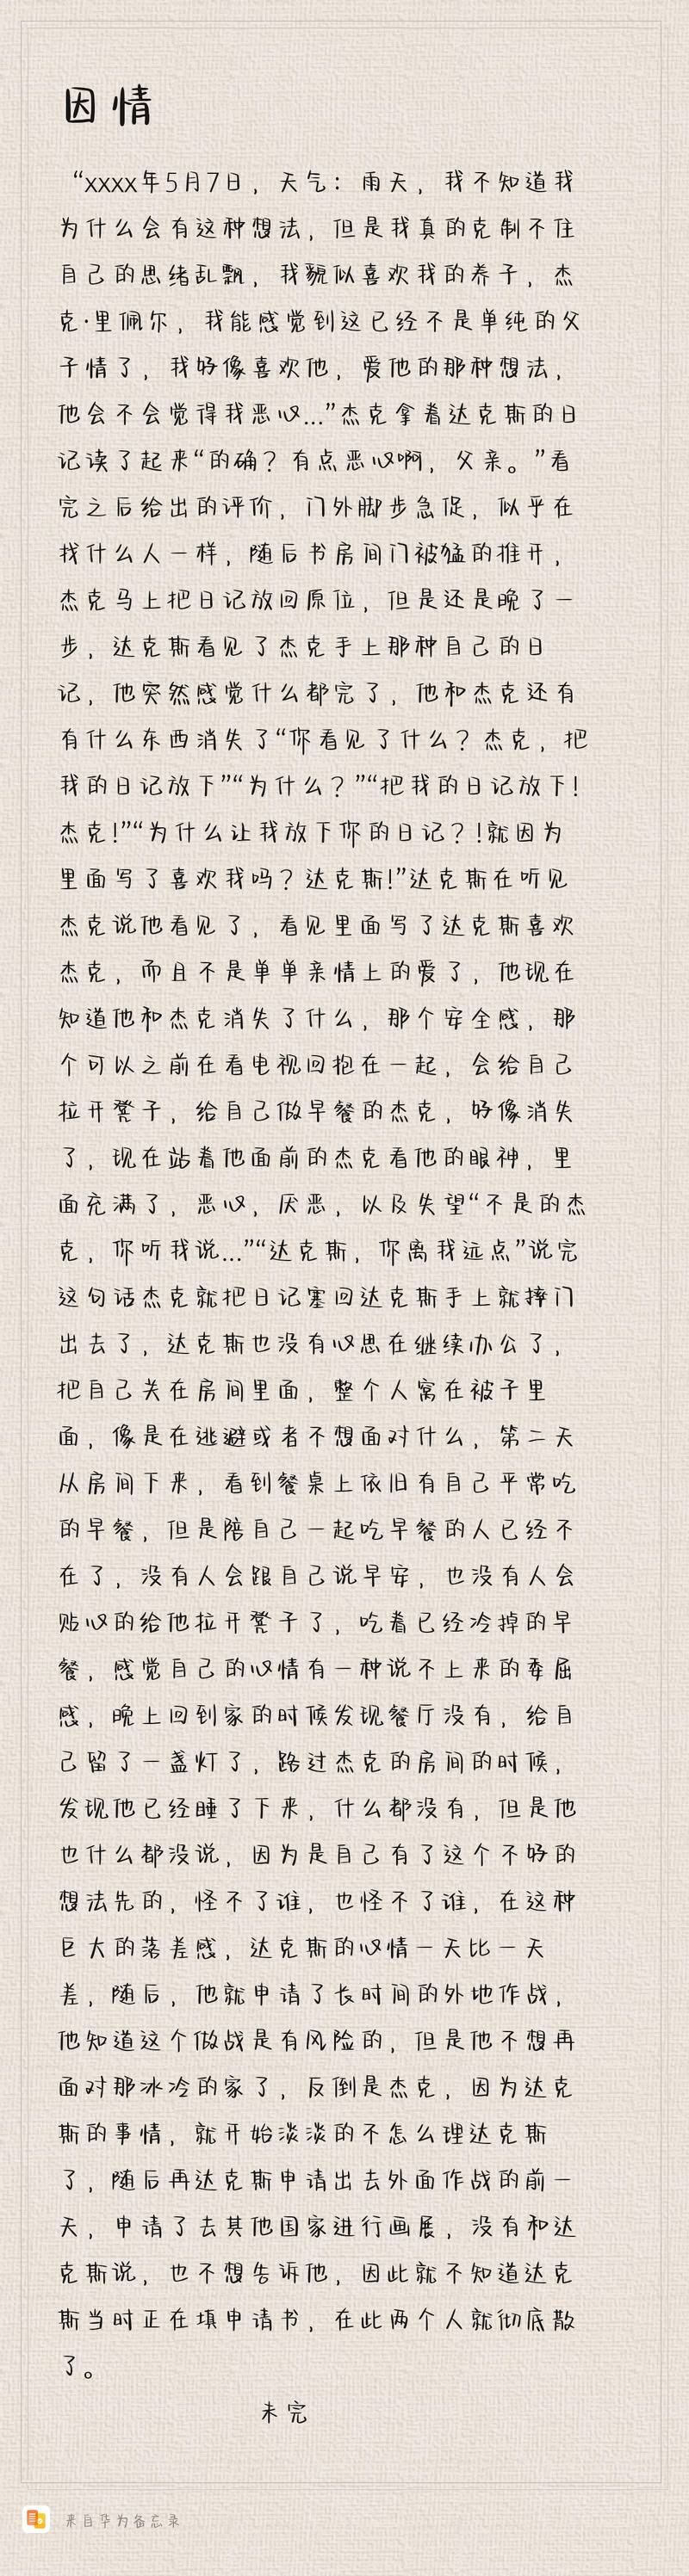 因情
“xxxx年5月7日，天气：雨天，我不知道我
为什么会有这种想法，但是我真的克制不住
自己的思绪乱飘，我貌似喜欢我的养子，杰
克·里佩尔，我能感觉到这已经不是单纯的父
子情了，我好像喜欢他，爱他的那种想法，
他会不会觉得我恶心…”杰克拿着达克斯的日
记读了起来“的确？有点恶心啊，父亲。”看
完之后给出的评价，门外脚步急促，似乎在
找什么人一样，随后书房间门被猛的推开，
杰克马上把日记放回原位，但是还是晚了一
步，达克斯看见了杰克手上那种自己的日
记，他突然感觉什么都完了，他和杰克还有
有什么东西消失了“你看见了什么？杰克，把
我的日记放下”“为什么？”“把我的日记放下！
杰克！”“为什么让我放下你的日记？！就因为
里面写了喜欢我吗？达克斯！”达克斯在听见
杰克说他看见了，看见里面写了达克斯喜欢
杰克，而且不是单单亲情上的爱了，他现在
知道他和杰克消失了什么，那个安全感，那
个可以之前在看电视回抱在一起，会给自己
拉开凳子，给自己做早餐的杰克，好像消失
了，现在站着他面前的杰克看他的眼神，里
面充满了，恶心，厌恶，以及失望“不是的杰
克，你听我说…”“达克斯，你离我远点”说完
这句话杰克就把日记塞回达克斯手上就摔门
出去了，达克斯也没有心思在继续办公了，
把自己关在房间里面，整个人窝在被子里
面，像是在逃避或者不想面对什么，第二天
从房间下来，看到餐桌上依旧有自己平常吃
的早餐，但是陪自己一起吃早餐的人已经不
在了，没有人会跟自己说早安，也没有人会
贴心的给他拉开凳子了，吃着已经冷掉的早
餐，感觉自己的心情有一种说不上来的委屈
感，晚上回到家的时候发现餐厅没有，给自
己留了一盏灯了，路过杰克的房间的时候，
发现他已经睡了下来，什么都没有，但是他
也什么都没说，因为是自己有了这个不好的
想法先的，怪不了谁，也怪不了谁，在这种
巨大的落差感，达克斯的心情一天比一天
差，随后，他就申请了长时间的外地作战，
他知道这个做战是有风险的，但是他不想再
面对那冰冷的家了，反倒是杰克，因为达克
斯的事情，就开始淡淡的不怎么理达克斯
了，随后再达克斯申请出去外面作战的前一
天，申请了去其他国家进行画展，没有和达
克斯说，也不想告诉他，因此就不知道达克
斯当时正在填申请书，在此两个人就彻底散
了。
未完
来自华为备忘录